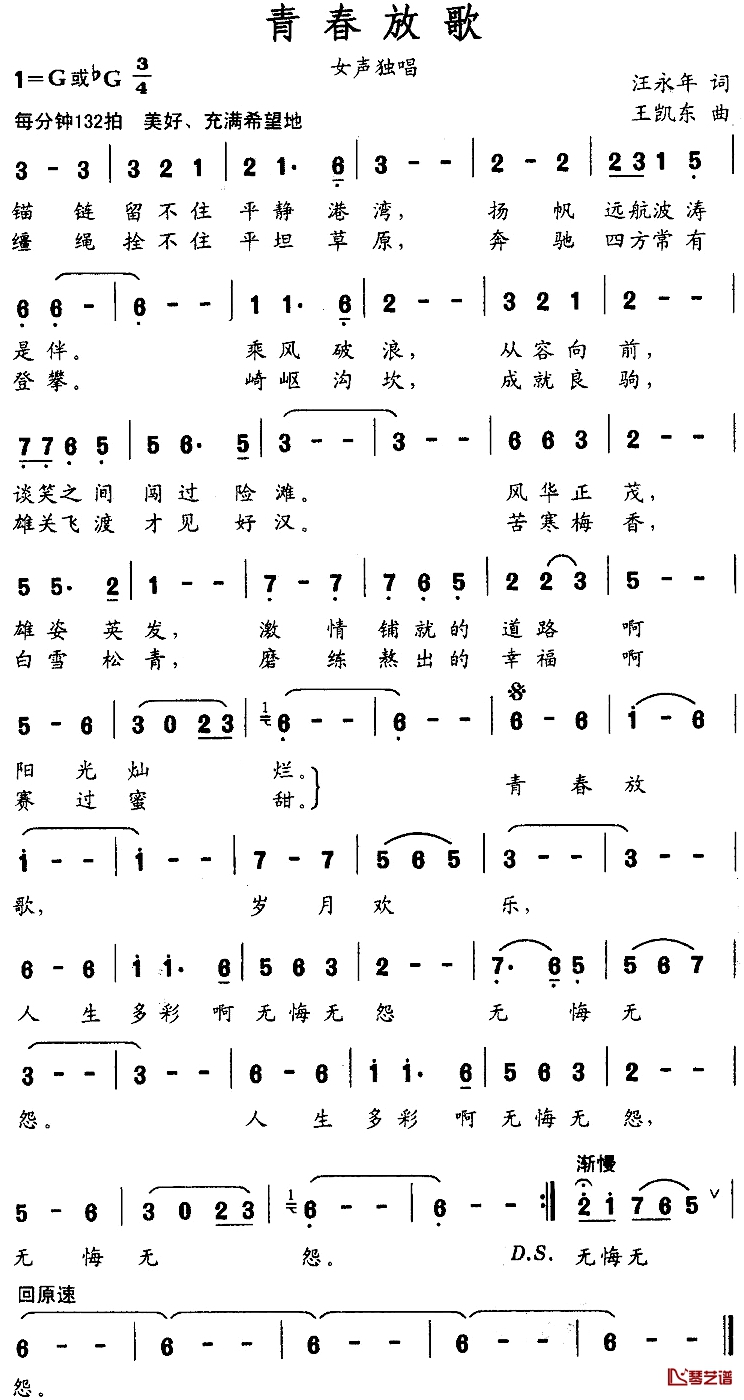 青春放歌
女声独唱
1=G或♭G 3/4
汪永年 词
每分钟132拍 美好、充满希望地
王凯东 曲
3 - 3 | 3 2 1 | 2 2 1· 6 | 3 - - | 2 - 2 | 2 3 1 5 |
锚 链 留不住 平静 港 湾， 扬 帆 远航波涛
缰 绳 拴不住 平坦 草 原， 奔 驰 四方常有
6 6 - | 6 - - | 1 1· 6 | 2 - - | 3 2 1 | 2 - - |
是伴。 乘风 破 浪， 从容向 前，
登攀。 崎岖 沟 坎， 成就良 驹，
7 7 6 5 | 5 6· 5 | 3 - - | 3 - - | 6 6 3 | 2 - - |
谈笑之间 闯过 险 滩。 风华正 茂，
雄关飞渡 才见 好 汉。 苦寒梅 香，
5 5· 2 | 1 - - | 7 - 7 | 7 6 5 | 2 2 3 | 5 - - |
雄姿 英 发， 激 情 铺就的 道路 啊
白雪 松 青， 磨 练 熬出的 幸福 啊
5 - 6 | 3 0 2 3 | 1 6 - - | 6 - - | 6 - 6 | 1 - 6 |
阳 光 灿 烂。
赛 过 蜜 甜。
青 春 放
1 - - | 1 - - | 7 - 7 | 5 6 5 | 3 - - | 3 - - |
歌， 岁 月 欢 乐，
6 - 6 | 1 1· 6 | 5 6 3 | 2 - - | 7· 6 5 | 5 6 7 |
人 生 多彩 啊 无悔无 怨 无 悔 无
3 - - | 3 - - | 6 - 6 | 1 1· 6 | 5 6 3 | 2 - - |
怨。 人 生 多彩 啊 无悔无 怨，
渐慢
5 - 6 | 3 0 2 3 | 1 6 - - | 6 - :‖ 2 1 7 6 5 ∨ |
无 悔 无 怨。 D.S. 无悔无
回原速
6 - - | 6 - - | 6 - - | 6 - - | 6 - - ‖
怨。
琴艺谱